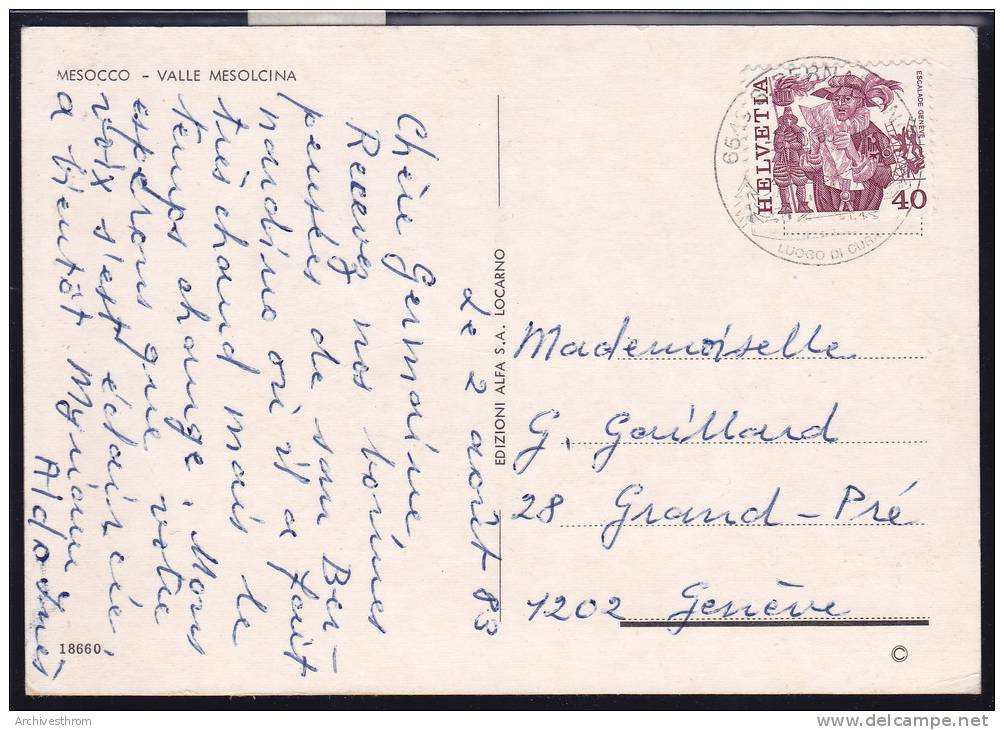 MESOCCO – VALLE MESOLCINA
Chère Germaine,
Recevez nos bonnes
pensées de san Ber-
nardino où il a fait
très chaud mais le
temps change. Nous
espérons que votre
voix s'est éclaircie.
a bientôt Myriam
Aldo Inès
18660
le 2 août 83
EDIZIONI ALFA S.A. LOCARNO
6549 S. BERNA
LUOGO DI CURA
HELVETIA
ESCALADE GENÈVE
40
Mademoiselle
G. Gaillard
28 Grand-Pré
1202 Genève
©
Archivesthrom
delcampe.net